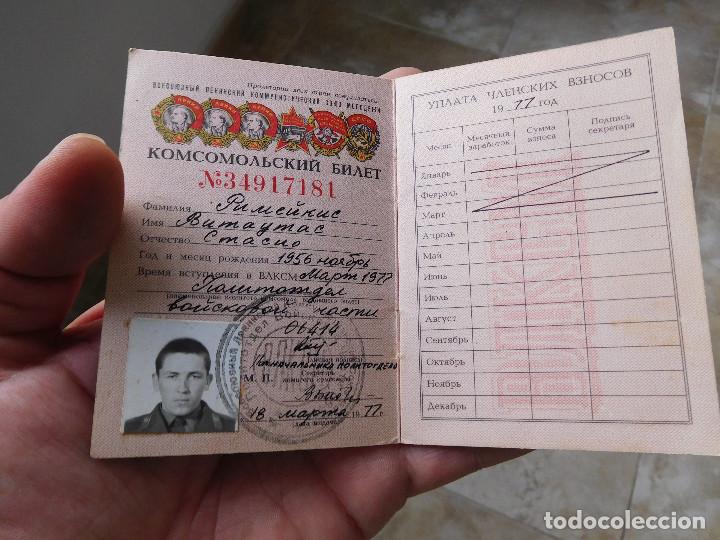 Пролетарии всех стран, соединяйтесь!
ВСЕСОЮЗНЫЙ ЛЕНИНСКИЙ КОММУНИСТИЧЕСКИЙ СОЮЗ МОЛОДЕЖИ
КОМСОМОЛЬСКИЙ БИЛЕТ
№34917181
Фамилия Римейкис
Имя Витаутас
Отчество Стасио
Год и месяц рождения 1956 ноябрь
Время вступления в ВЛКСМ Март 1977
Политотдел
войсковой части
06414
М. П.
Секретарь
18 марта 1977 г.
УПЛАТА ЧЛЕНСКИХ ВЗНОСОВ
19 77 ГОД
Месяц Месячный заработок Сумма взноса Подпись секретаря
Январь
Февраль
Март
Апрель
Май
Июнь
Июль
Август
Сентябрь
Октябрь
Ноябрь
Декабрь
todocoleccion.net